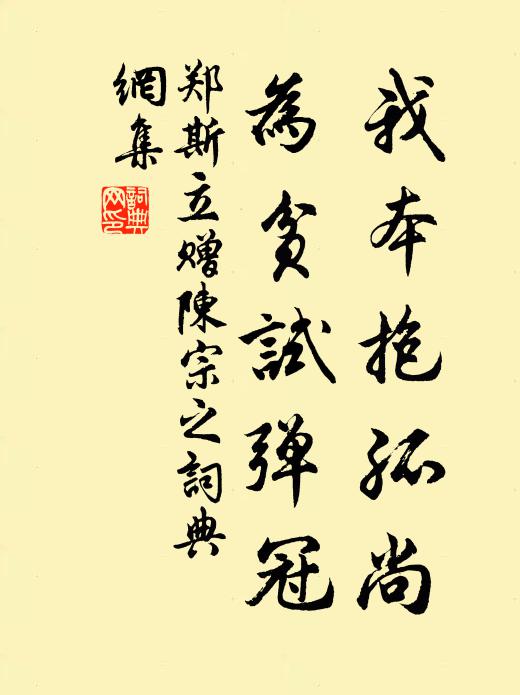 我本抱孤尚
為貧試弹冠
郑斯立赠陳宗之詞典
網集
詞典
网印